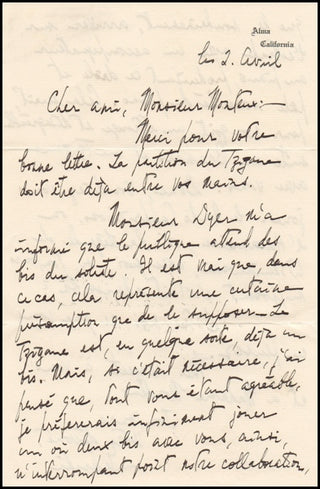 Alma
California
les 2. Avril
Cher ami, Monsieur Monteux:-
Merci pour votre
bonne lettre. La partition du Tzigane
doit être déja entre vos mains.
Monsieur Dyer m'a
informé que le publique attend des
bis du soliste. Il est vrai que, dans
ce cas, cela représente une certaine
présomption que de le supposer - Le
Tzigane est, en quelque sorte, déja un
bis. Mais, si c'était nécessaire, j'ai
pensé que, tout vous étant agréable,
je préfererais infiniment jouer
un où deux bis avec vous, ainsi,
n'interrompant point notre collaboration,